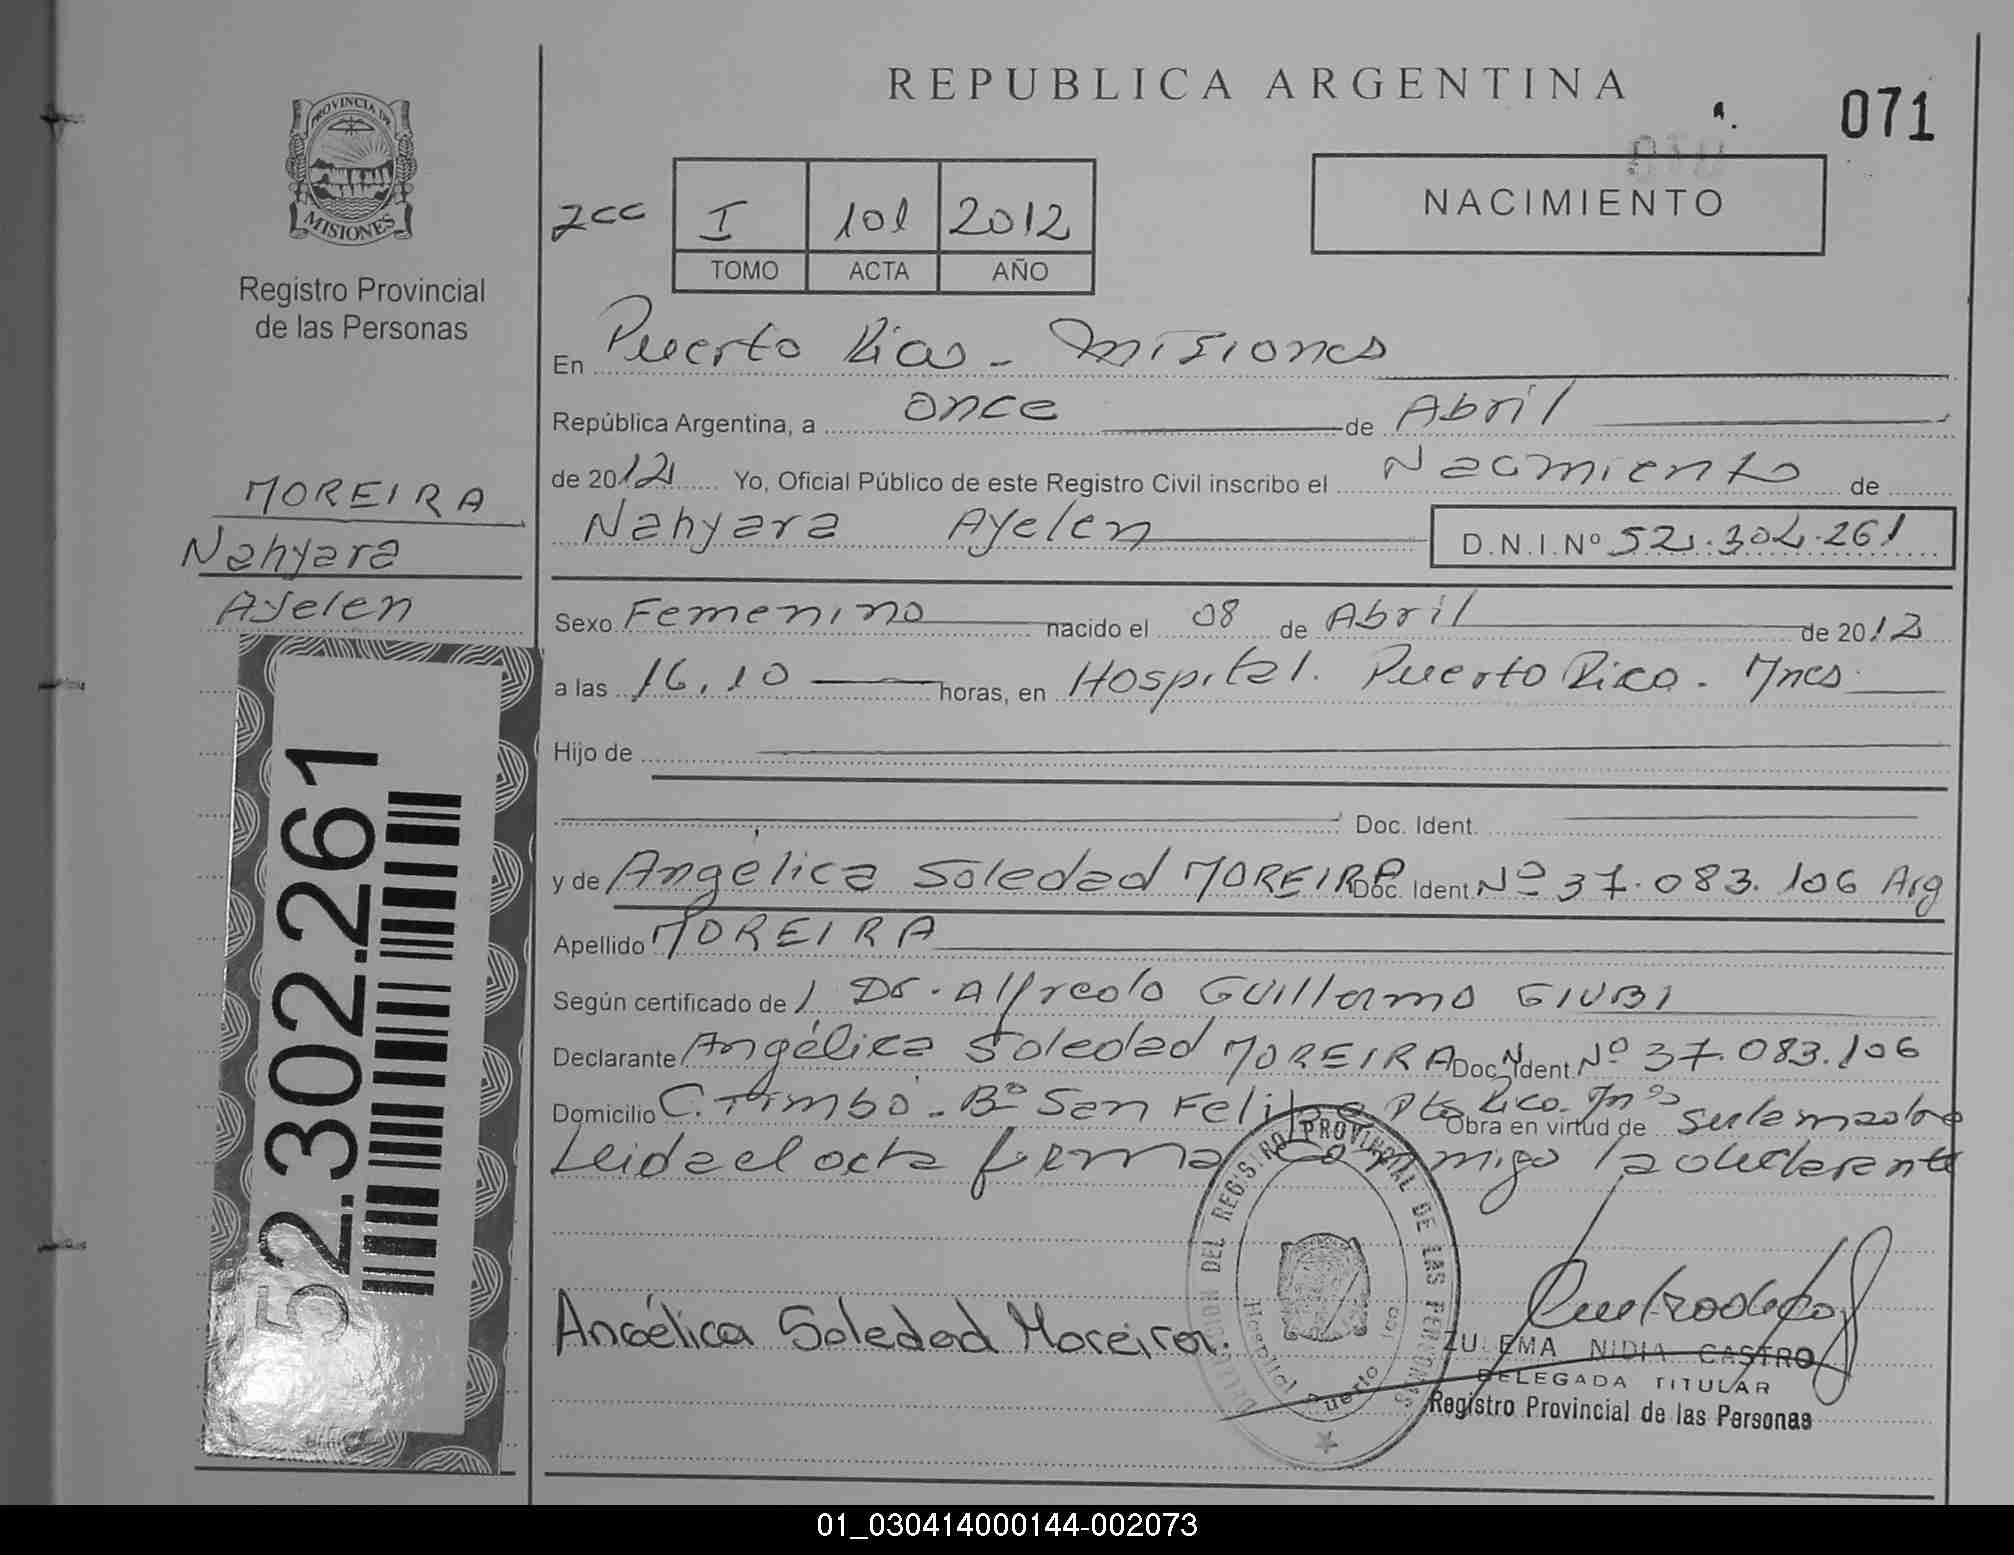 REPUBLICA ARGENTINA
071
PROVINCIA DE
MISIONES
Registro Provincial
de las Personas
NACIMIENTO
7cc
I 101 2012
TOMO ACTA AÑO
En Puerto Rico - Misiones
República Argentina, a once de Abril
de 2012 Yo, Oficial Público de este Registro Civil inscribo el Nacimiento de
Nahyara Ayelen D.N.I. Nº 52.302.261
MOREIRA
Nahyara
Ayelen
52.302.261
Sexo Femenino nacido el 08 de Abril de 2012
a las 16,10 horas, en Hospital. Puerto Rico. Mnes
Hijo de
Doc. Ident.
y de Angélica Soledad MOREIRA Doc. Ident. Nº 37.083.106 Arg
Apellido MOREIRA
Según certificado de / Dr. Alfredo Guillermo GIUBI
Declarante Angélica Soledad MOREIRA Doc. Ident. Nº 37.083.106
Domicilio C. Timbó - Bº San Felipe Pto Rico. Mnes Obra en virtud de su lemadre
Leida el acta firma conmigo la declarante
DELEGACION DEL REGISTRO PROVINCIAL DE LAS PERSONAS
Hospital Puerto Rico
Angélica Soledad Moreira.
ZULEMA NIDIA CASTRO
DELEGADA TITULAR
Registro Provincial de las Personas
01_030414000144-002073